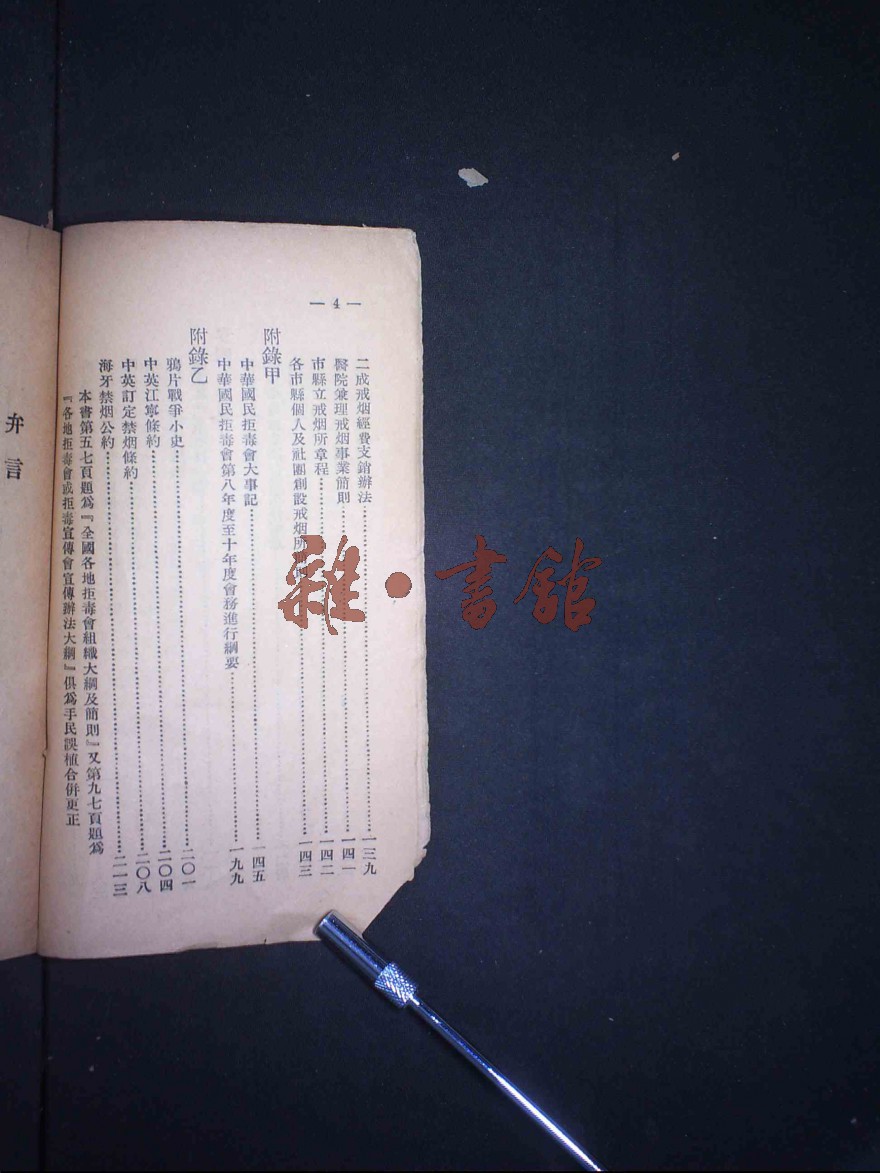 — 4 —
二成戒烟經費支銷辦法……一三九
醫院兼理戒烟事業簡則……一四一
市縣立戒烟所章程……一四二
各市縣個人及社團創設戒烟所……一四三
附錄甲
中華國民拒毒會大事記……一四五
中華國民拒毒會第八年度至十年度會務進行綱要……一九九
附錄乙
鴉片戰爭小史……二〇一
中英江寧條約……二〇四
中英訂定禁烟條約……二〇八
海牙禁烟公約……二一三
本書第五七頁題爲『全國各地拒毒會組織大綱及簡則』又第九七頁題爲
『各地拒毒會或拒毒宣傳會宣傳辦法大綱』俱爲手民誤植合併更正
弁言
雜·書館